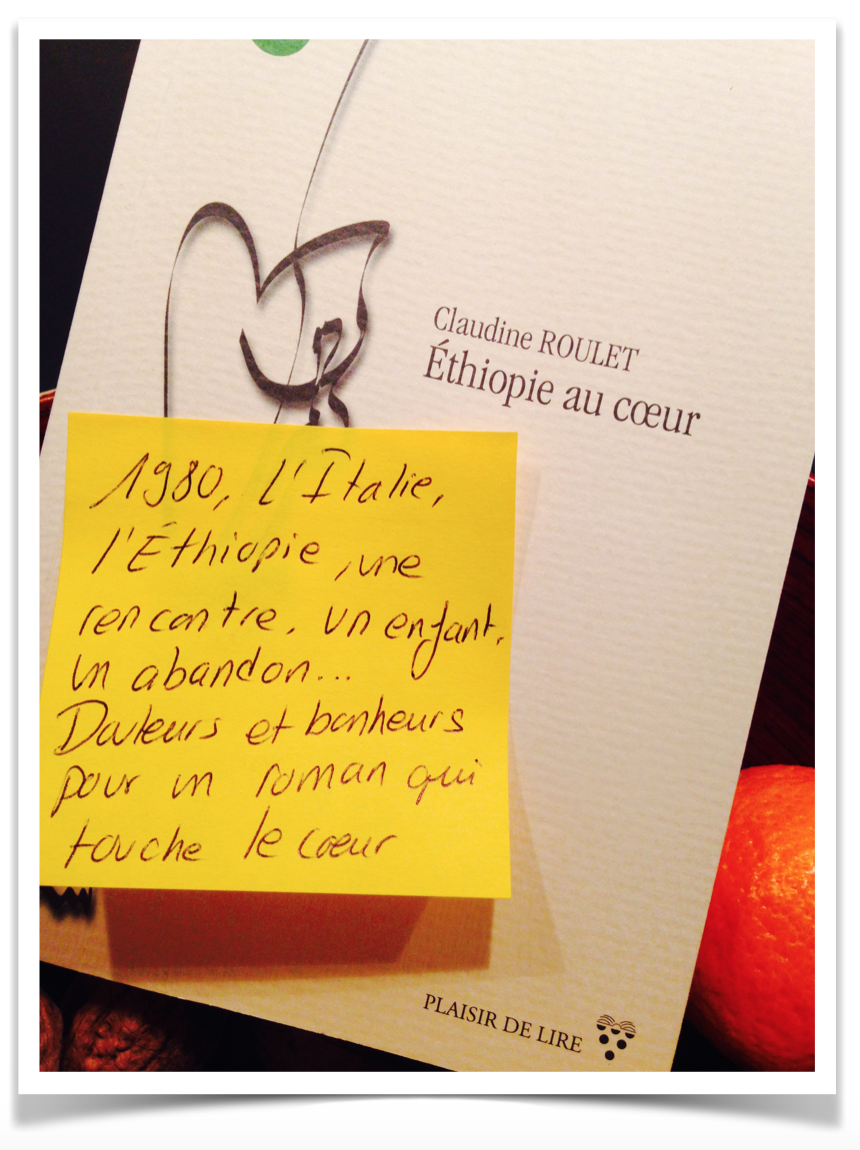 Claudine ROULET
Éthiopie au cœur
1980, l'Italie,
l'Éthiopie, une
rencontre. un enfant,
un abandon...
Douleurs et bonheurs
pour un roman qui
touche le cœur
PLAISIR DE LIRE